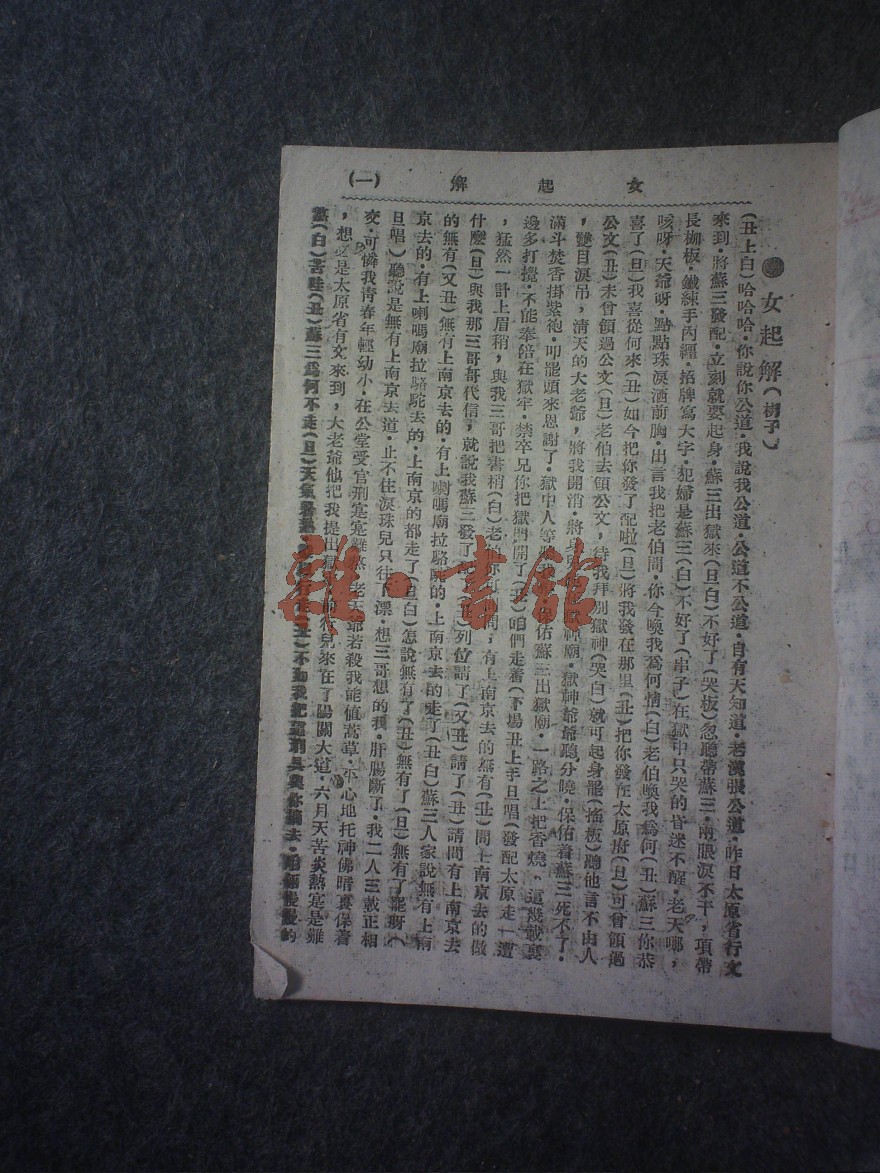 女起解 (一)
女起解(梆子)
(丑上白)哈哈哈·你說你公道·我說我公道·公道不公道·自有天知道·老漢張公道·昨日太原省行文
來到·將蘇三發配·立刻就要起身·蘇三出獄來(旦白)不好了(哭板)忽聽帶蘇三·兩眼淚不干，項帶
長枷板·鐵練手肉纏·招牌寫大字·犯婦是蘇三(白)不好了(串子)在獄中只哭的昏迷不醒·老天哪，
咳呀·天爺呀·點點珠淚洒前胸·出言我把老伯問·你今喚我為何情(白)老伯喚我為何(丑)蘇三你恭
喜了(旦)我喜從何來(丑)如今把你發了配啦(旦)將我發在那里(丑)把你發在太原府(旦)可曾領過
公文(丑)未曾領過公文(旦)老伯去領公文，待我拜別獄神(哭白)就可起身罷(搖板)聽他言不由人
，雙目淚吊，清天的大老爺，將我開消·將身 獄神廟·獄神爺爺聽分曉·保佑着蘇三死不了·
滿斗焚香掛紫袍·叩罷頭來恩謝了·獄中人等 佑蘇三出獄廟·一路之上把香燒，這幾載裏
邊多打攪·不能奉陪在獄牢·禁卒兄你把獄門開了 咱們走着(下場丑上手旦唱)發配太原走一遭
，猛然一計上眉稍，與我三哥把書梢(白)老 問，有上南京去的無有(丑)問上南京去的做
什麼(旦)與我那三哥哥代信，就說我蘇三發了 列位請了(又丑)請了(丑)請問有上南京去
的無有(又丑)無有上南京去的·有上喇嗎廟拉駱駝的·上南京去的走了(丑白)蘇三人家說無有上南
京去的·有上喇嗎廟拉駱駝去的·上南京的都走了(旦白)怎說無有了(丑)無有了(旦)無有了罷呀(
旦唱)聽說是無有上南京去道·止不住淚珠兒只往下漂·想三哥想的我·肝腸斷了·我二人三載正相
交·可憐我青春年輕幼小·在公堂受官刑寔寔難熬·老天爺若殺我能值蒿草·平心地托神佛暗裏保着
，想必是太原省有文來到，大老爺他把我提出獄 行兒來在了陽關大道·六月天苦炎熱寔是難
熬(白)苦哇(丑)蘇三為何不走(旦)天氣 不動我把 刑具與你 去·
雜·書館